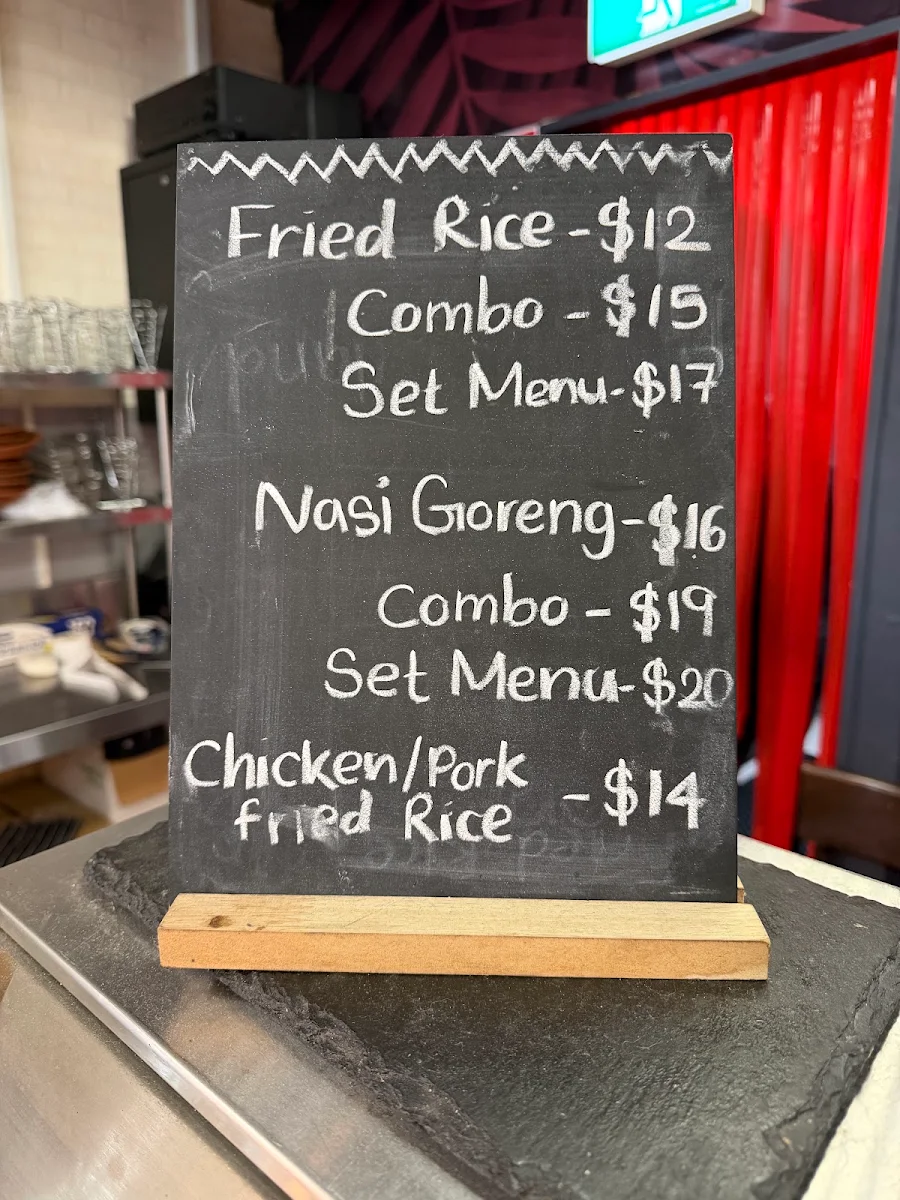 Fried Rice - $12
Combo - $15
Set Menu - $17
Nasi Goreng - $16
Combo - $19
Set Menu - $20
Chicken/Pork
fried Rice - $14